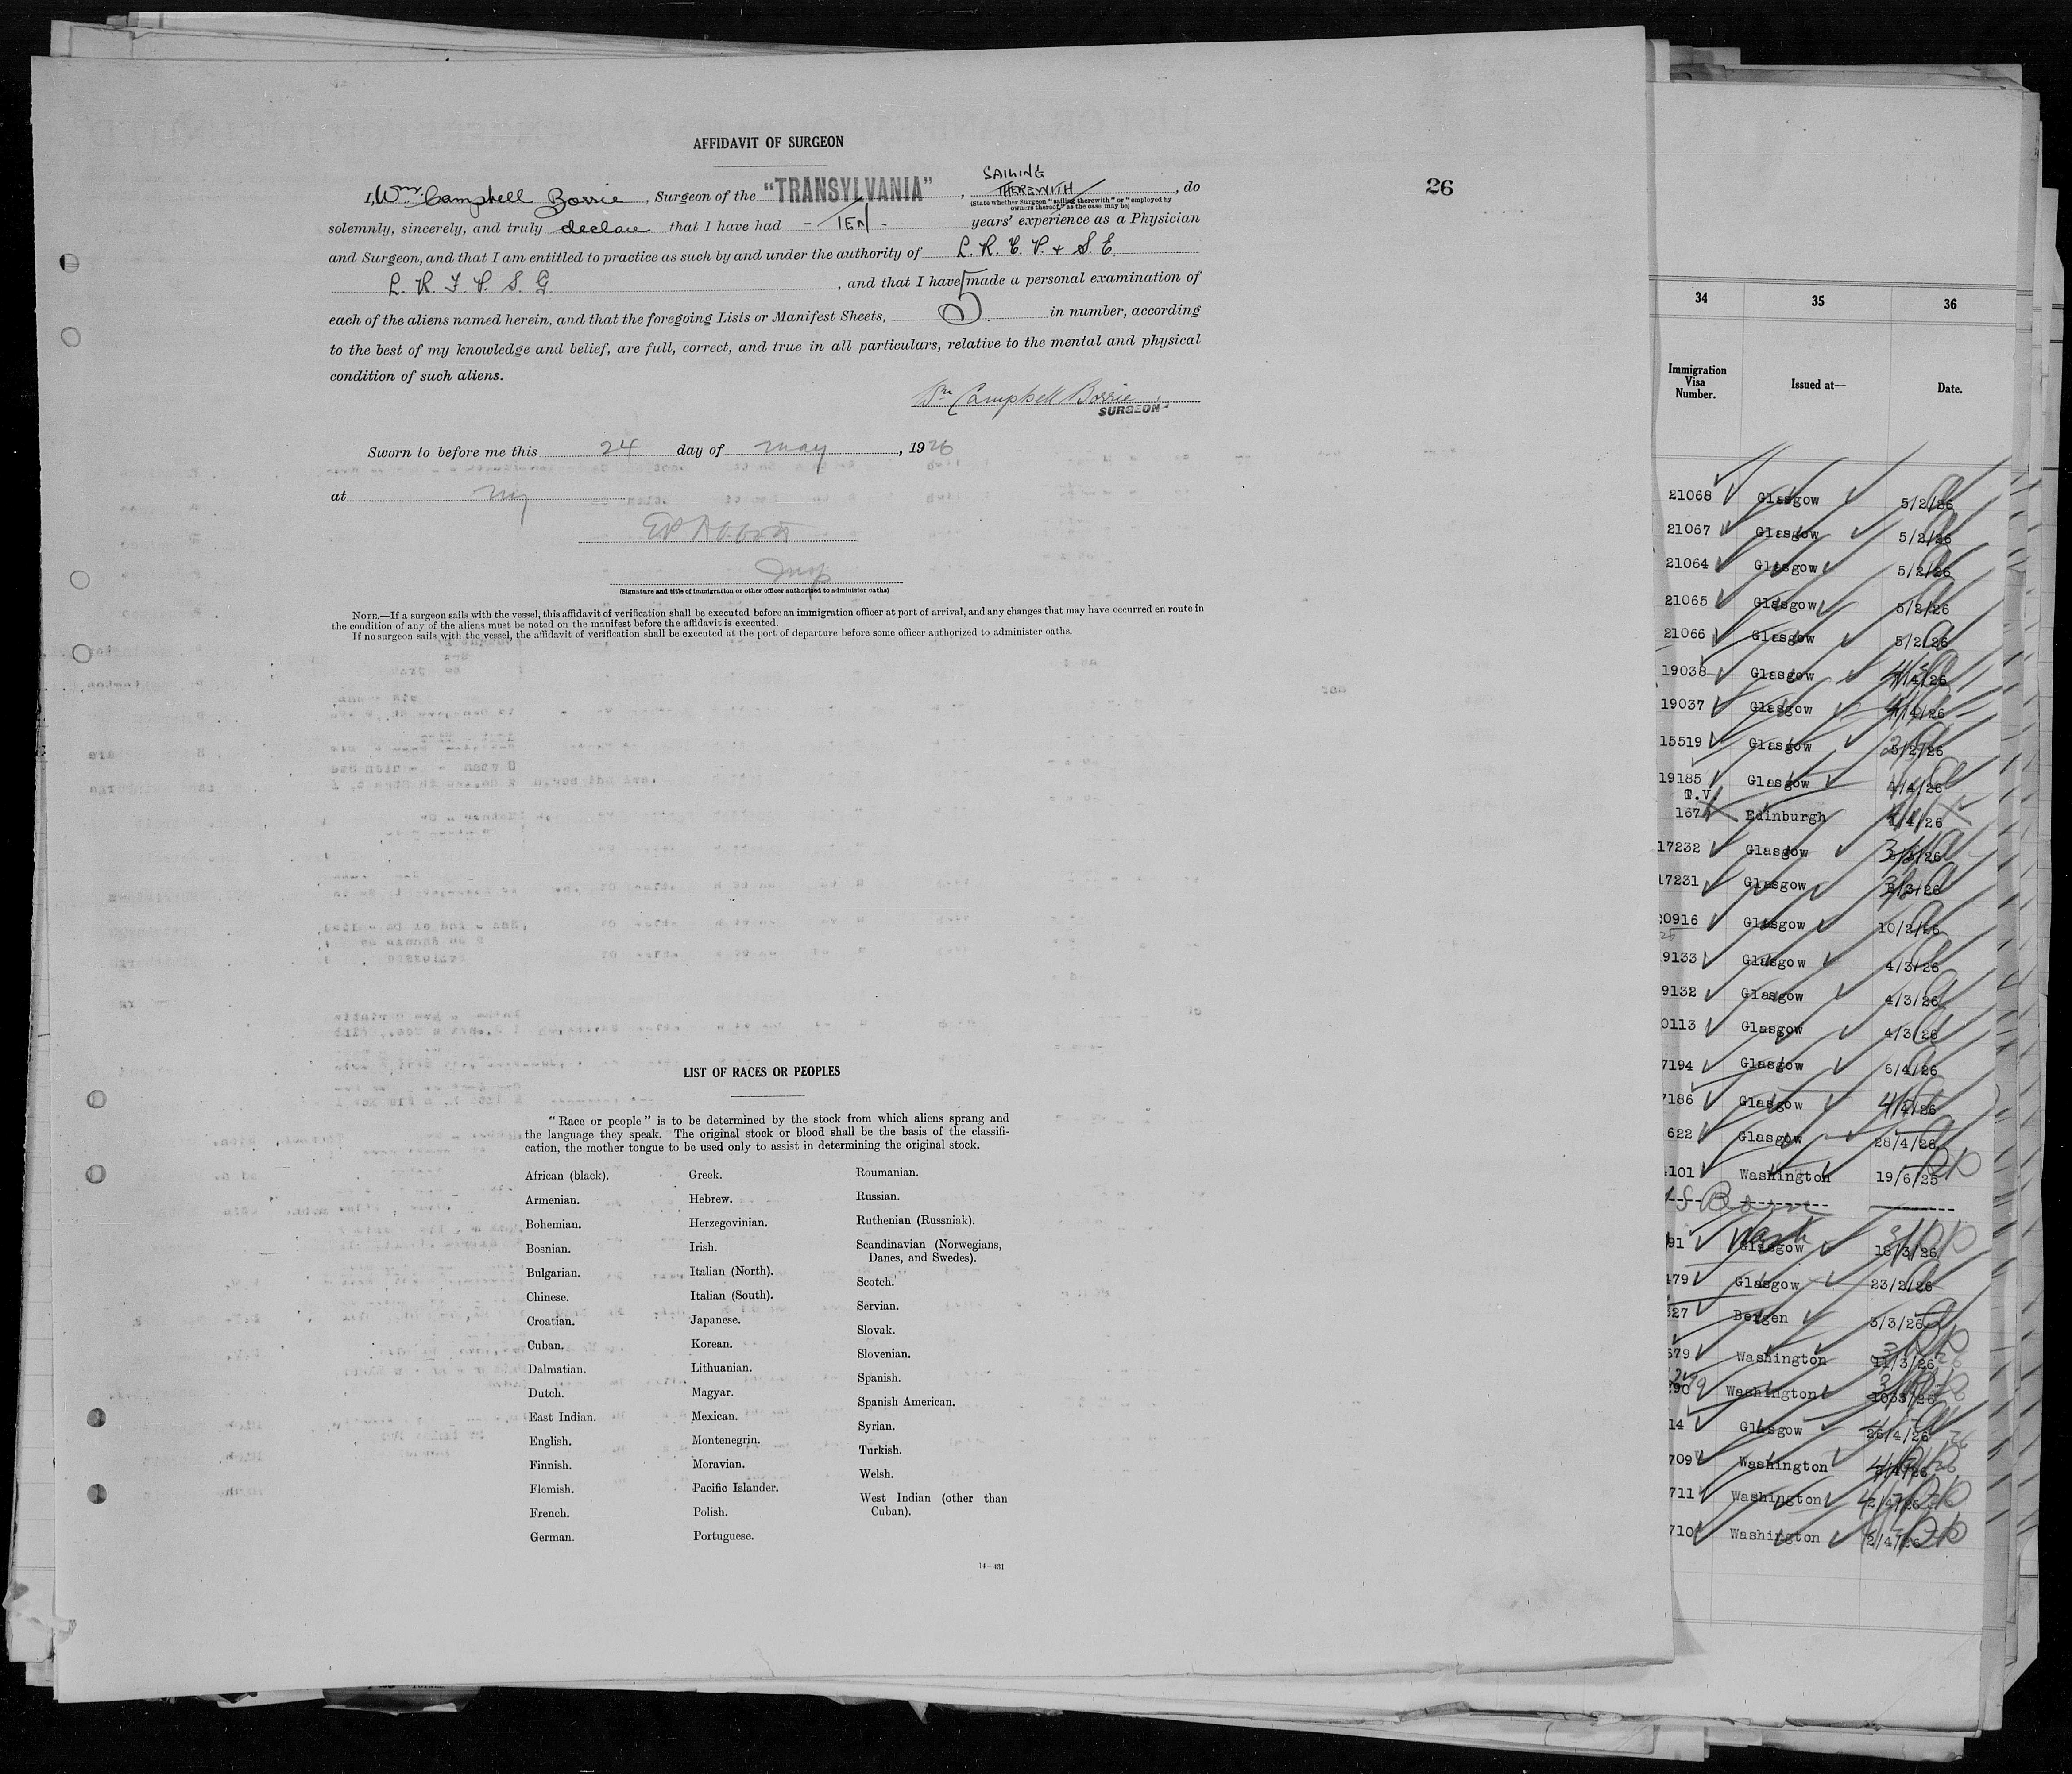 AFFIDAVIT OF SURGEON
I, Wm. Campbell Borrie, Surgeon of the "TRANSYLVANIA", SAILING THEREWITH, do
(State whether Surgeon "sailing therewith" or "employed by
owners thereof," as the case may be)
solemnly, sincerely, and truly declare that I have had - TEN - years' experience as a Physician
and Surgeon, and that I am entitled to practice as such by and under the authority of L. R. C. P. & S. E.
L. R. F. P. S. G. , and that I have made a personal examination of
each of the aliens named herein, and that the foregoing Lists or Manifest Sheets, in number, according
to the best of my knowledge and belief, are full, correct, and true in all particulars, relative to the mental and physical
condition of such aliens.
Wm Campbell Borrie
SURGEON
Sworn to before me this 24 day of May, 1926
at NY
Insp
(Signature and title of immigration or other officer authorized to administer oaths)
NOTE.—If a surgeon sails with the vessel, this affidavit of verification shall be executed before an immigration officer at port of arrival, and any changes that may have occurred en route in
the condition of any of the aliens must be noted on the manifest before the affidavit is executed.
If no surgeon sails with the vessel, the affidavit of verification shall be executed at the port of departure before some officer authorized to administer oaths.
26
LIST OF RACES OR PEOPLES
"Race or people" is to be determined by the stock from which aliens sprang and
the language they speak. The original stock or blood shall be the basis of the classifi-
cation, the mother tongue to be used only to assist in determining the original stock.
African (black).
Armenian.
Bohemian.
Bosnian.
Bulgarian.
Chinese.
Croatian.
Cuban.
Dalmatian.
Dutch.
East Indian.
English.
Finnish.
Flemish.
French.
German.
Greek.
Hebrew.
Herzegovinian.
Irish.
Italian (North).
Italian (South).
Japanese.
Korean.
Lithuanian.
Magyar.
Mexican.
Montenegrin.
Moravian.
Pacific Islander.
Polish.
Portuguese.
Roumanian.
Russian.
Ruthenian (Russniak).
Scandinavian (Norwegians,
Danes, and Swedes).
Scotch.
Servian.
Slovak.
Slovenian.
Spanish.
Spanish American.
Syrian.
Turkish.
Welsh.
West Indian (other than
Cuban).
14—431
34 35 36
Immigration
Visa
Number.
Issued at—
Date.
21068 Glasgow 5/2/26
21067 Glasgow 5/2/26
21064 Glasgow 5/2/26
21065 Glasgow 5/2/26
21066 Glasgow 5/2/26
19038 Glasgow /4/26
19037 Glasgow /4/26
15519 Glasgow 5/2/26
19185 Glasgow 4/4/26
T.V.
167 Edinburgh 1/4/26
17232 Glasgow
17231 Glasgow
20916 Glasgow 10/2/26
9133 Glasgow 4/3/26
9132 Glasgow 4/3/26
0113 Glasgow 4/3/26
7194 Glasgow 6/4/26
7186 Glasgow
622 Glasgow 28/4/26
101 Washington 19/6/25
S Born
91 Wash Glasgow 18/3/26
479 Glasgow 23/2/26
527 Bergen 3/3/26
679 Washington 11/3/26
290 Washington
14 Glasgow 26/4/26
709 Washington
711 Washington 2/4/26
710 Washington 2/4/26